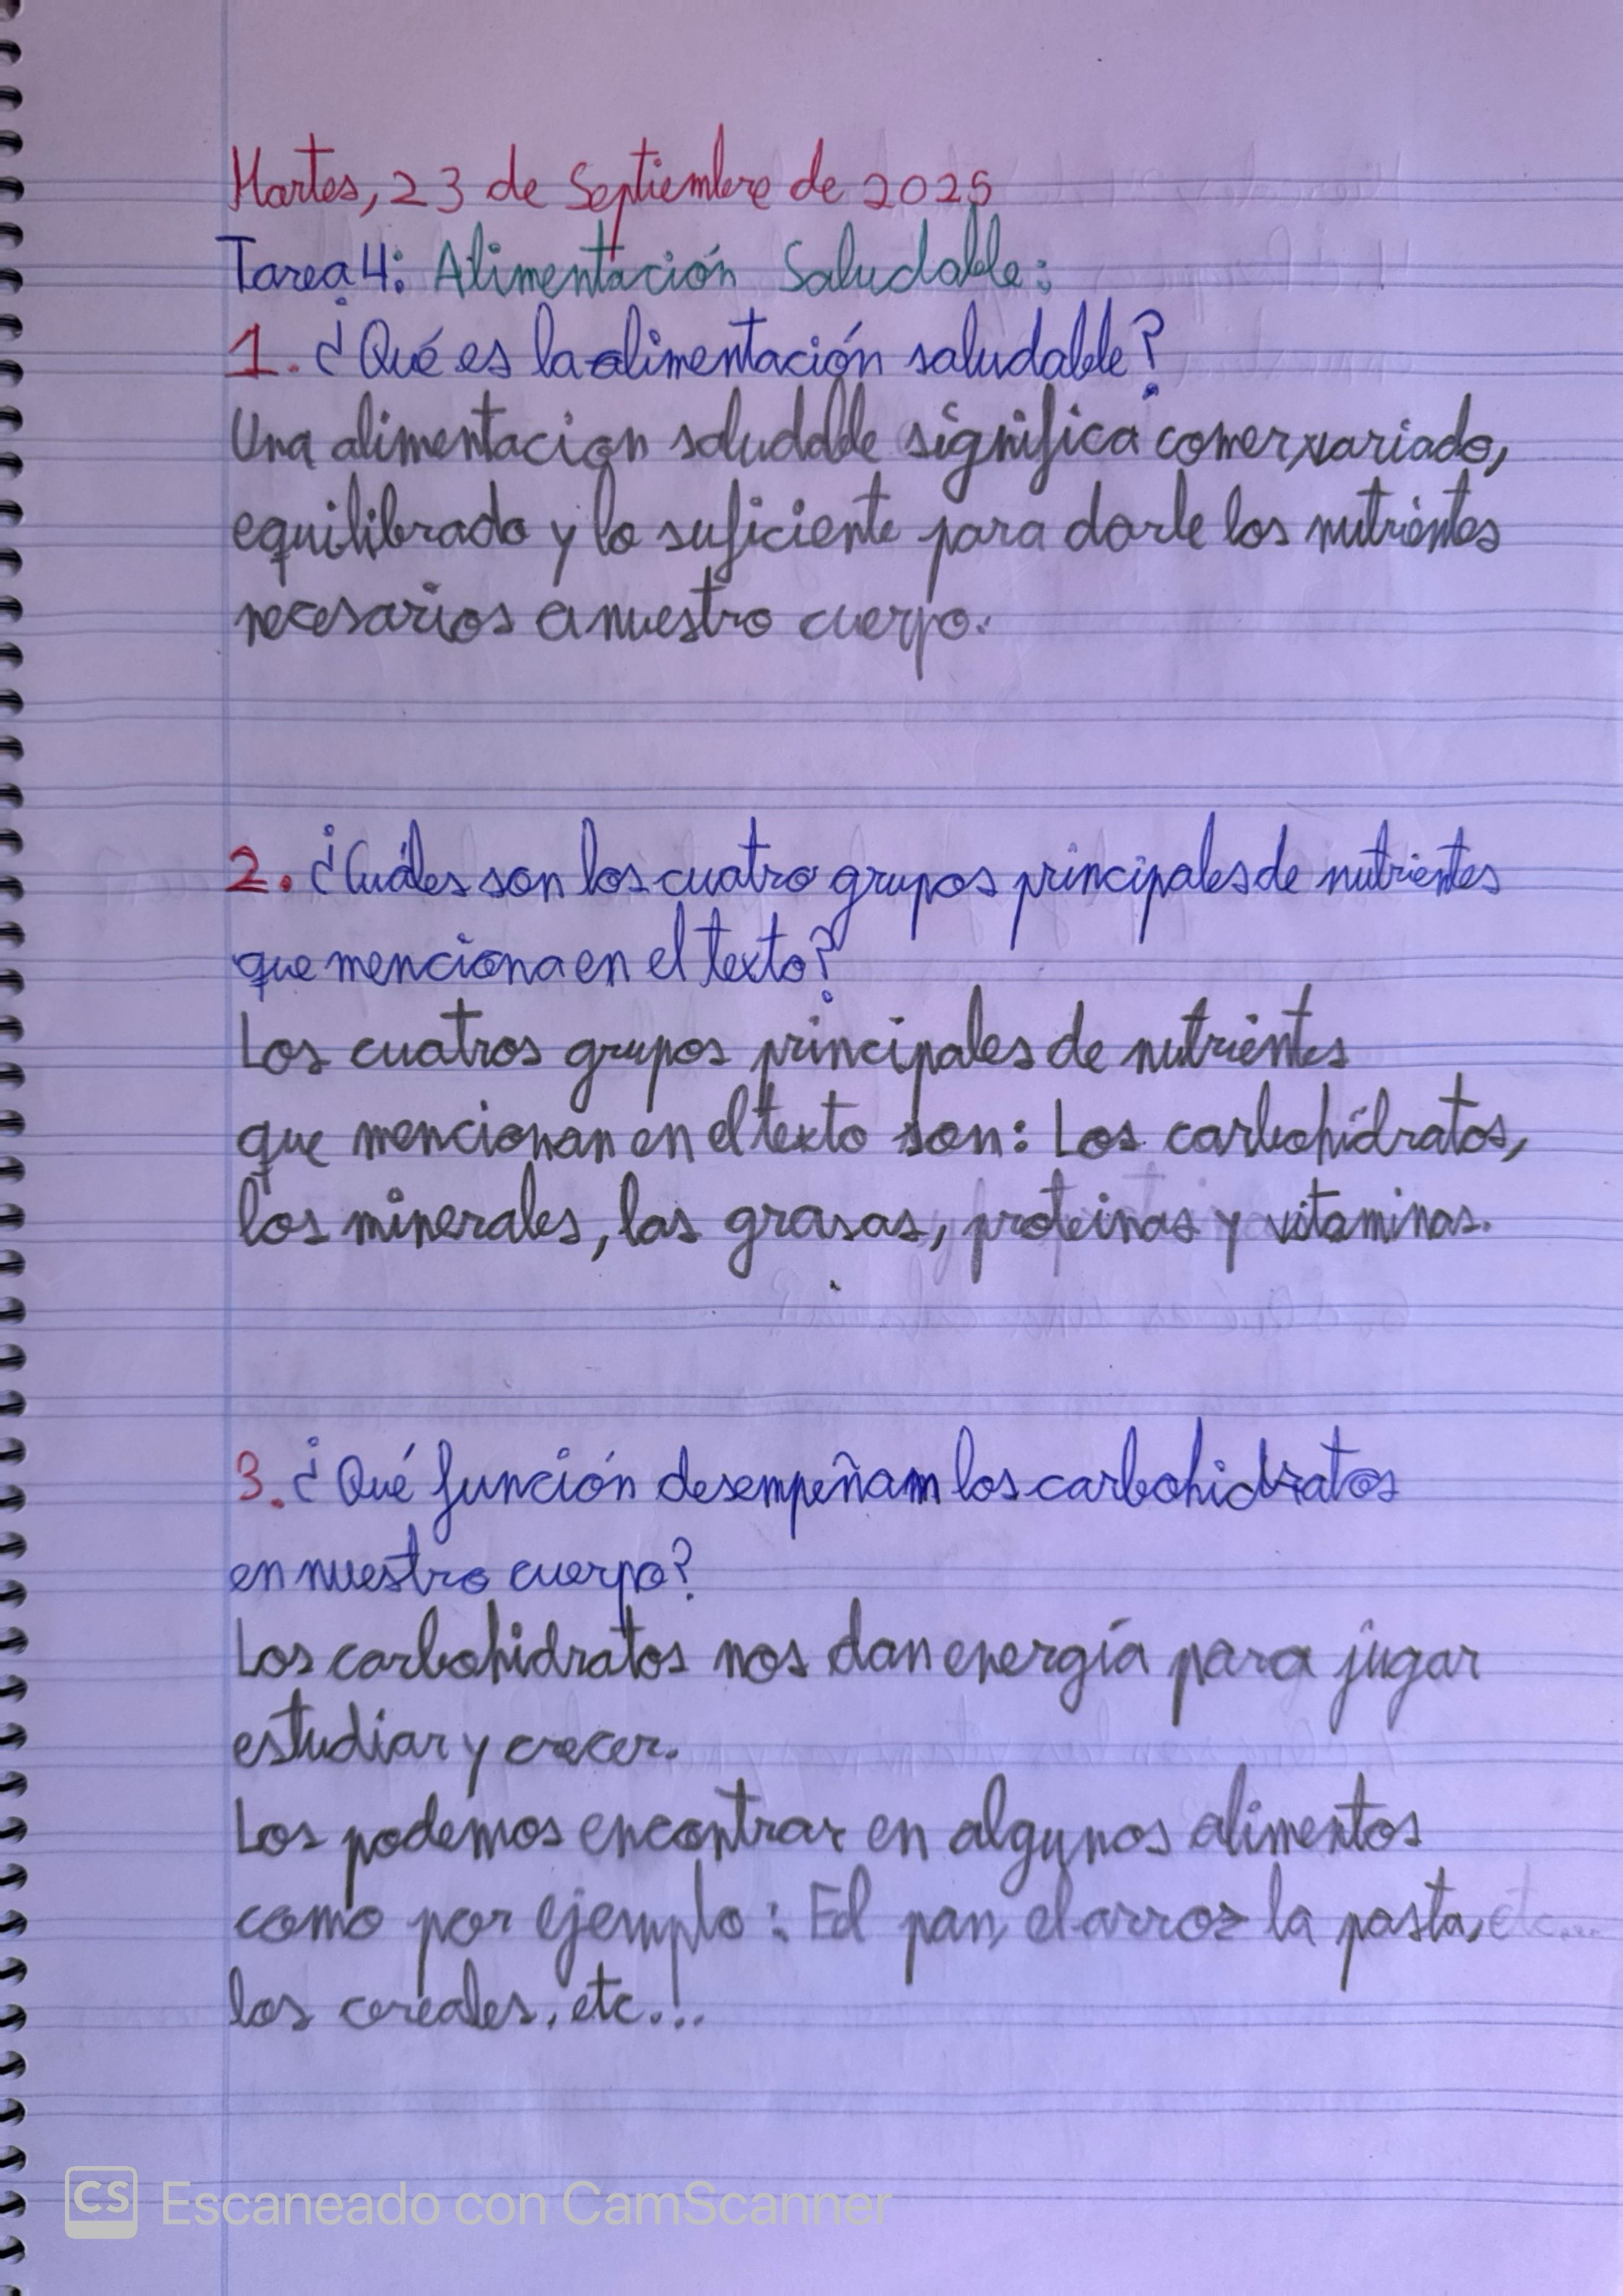 Martes, 23 de Septiembre de 2025
Tarea 4: Alimentación Saludable:
1. ¿Qué es la alimentación saludable?
Una alimentacion saludable significa comer variado,
equilibrado y lo suficiente para darle los nutrientes
necesarios a nuestro cuerpo.
2. ¿Cuáles son los cuatro grupos principales de nutrientes
que menciona en el texto?
Los cuatros grupos principales de nutrientes
que mencionan en el texto son: Los carbohidratos,
los minerales, las grasas, proteinas y vitaminas.
3. ¿Qué función desempeñam los carbohidratos
en nuestro cuerpo?
Los carbohidratos nos dan energía para jugar
estudiar y crecer.
Los podemos encontrar en algunos alimentos
como por ejemplo: El pan, el arroz la pasta, etc...
los cereales, etc...
CS Escaneado con CamScanner